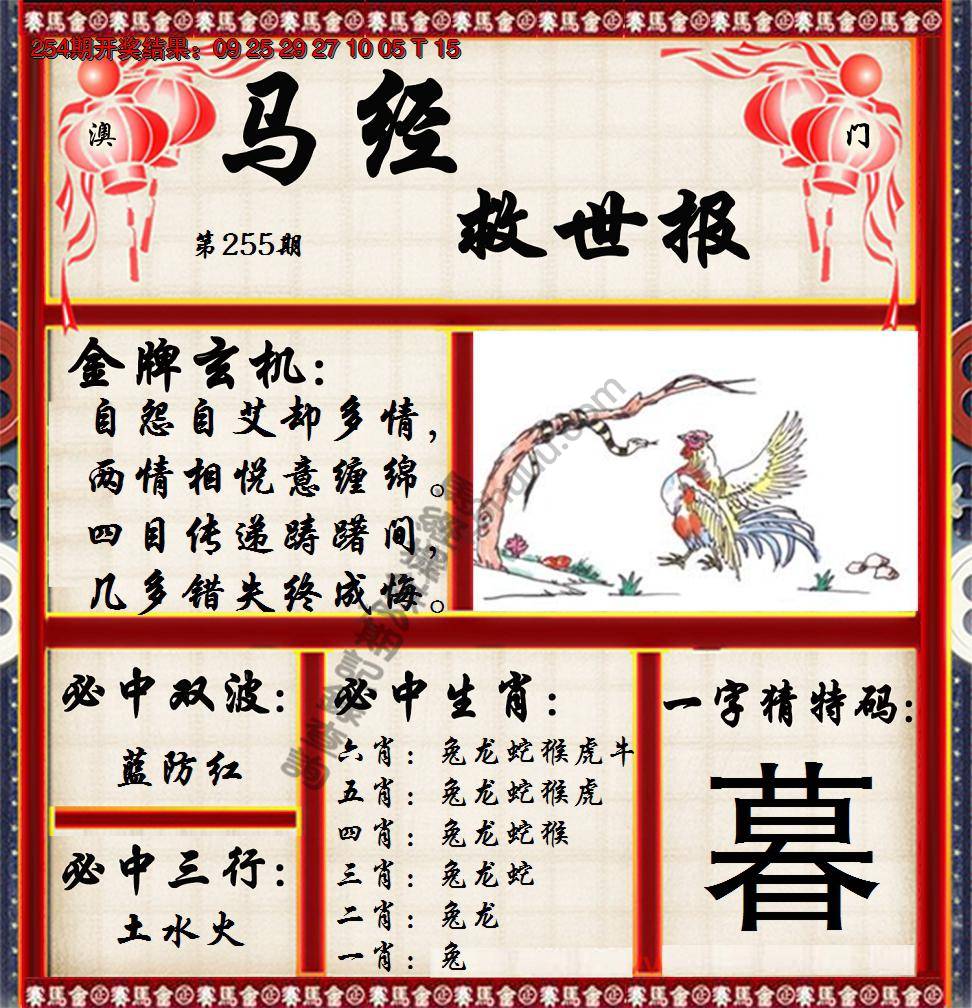 254期开奖结果：09 25 29 27 10 05 T 15
澳
门
马经
救世报
第255期
金牌玄机：
自怨自艾却多情，
两情相悦意缠绵。
四目传递踌躇间，
几多错失终成悔。
必中双波：
蓝防红
必中三行：
土水火
必中生肖：
六肖：兔龙蛇猴虎牛
五肖：兔龙蛇猴虎
四肖：兔龙蛇猴
三肖：兔龙蛇
二肖：兔龙
一肖：兔
一字猜特码：
暮